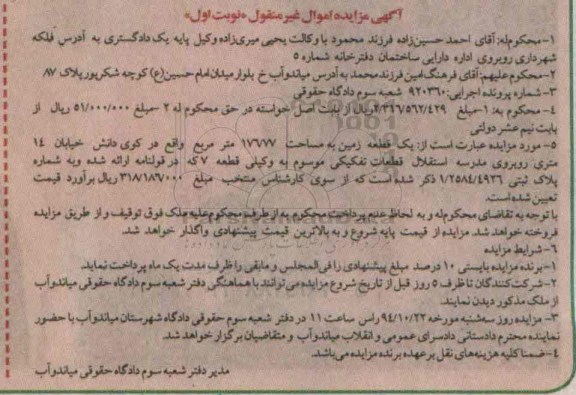 آگهی مزایده اموال غیر منقول «نوبت اول»
۱- محکوم‌له: آقای احمد حسین‌زاده فرزند محمود با وکالت یحیی میری‌زاده وکیل پایه یک دادگستری به آدرس فلکه
شهرداری روبروی اداره دارایی ساختمان دفترخانه شماره ۵
۲- محکوم علیهم: آقای فرهنگ امین فرزند محمد به آدرس میاندوآب خ بلوار میدان امام حسین(ع) کوچه شکرپور پلاک ۸۷
۳- شماره پرونده اجرایی: ۹۲۰۳۶۰ شعبه سوم دادگاه حقوقی
۴- محکوم به: ۱- مبلغ ۲/۳۴۶/۵۶۲/۴۲۹ ریال از بابت اصل خواسته در حق محکوم له ۲- مبلغ ۵۱/۰۰۰/۰۰۰ ریال از
بابت نیم عشر دولتی
۵- مورد مزایده عبارت است از: یک قطعه زمین به مساحت ۱۷۶/۷۷ متر مربع واقع در کوی دانش خیابان ۱۴
متری روبروی مدرسه استقلال قطعات تفکیکی موسوم به وکیلی قطعه ۷ که در قولنامه ارائه شده و به شماره
پلاک ثبتی ۱/۲۵۸۴/۴۹۳۶ ذکر شده است که از سوی کارشناس منتخب مبلغ ۳۱۸/۱۸۶/۰۰۰ ریال برآورد قیمت
تعیین شده است.
با توجه به تقاضای محکوم‌له و به لحاظ عدم پرداخت محکوم به از طرف محکوم علیه ملک فوق توقیف و از طریق مزایده
فروخته خواهد شد. مزایده از قیمت پایه شروع و به بالاترین قیمت پیشنهادی واگذار خواهد شد.
۶- شرایط مزایده
۱- برنده مزایده بایستی ۱۰ درصد مبلغ پیشنهادی را فی‌المجلس و مابقی را ظرف مدت یک ماه پرداخت نماید.
۲- شرکت‌کنندگان تا ظرف ۵ روز قبل از تاریخ شروع مزایده می‌توانند با هماهنگی دفتر شعبه سوم دادگاه حقوقی میاندوآب
از ملک مذکور دیدن نمایند.
۳- مزایده روز سه‌شنبه مورخه ۹۴/۱۰/۲۲ راس ساعت ۱۱ در دفتر شعبه سوم حقوقی دادگاه شهرستان میاندوآب با حضور
نماینده محترم دادستانی دادسرای عمومی و انقلاب میاندوآب و متقاضیان برگزار خواهد شد.
۴- ضمنا کلیه هزینه‌های نقل بر عهده برنده مزایده می‌باشد.
مدیر دفتر شعبه سوم دادگاه حقوقی میاندوآب